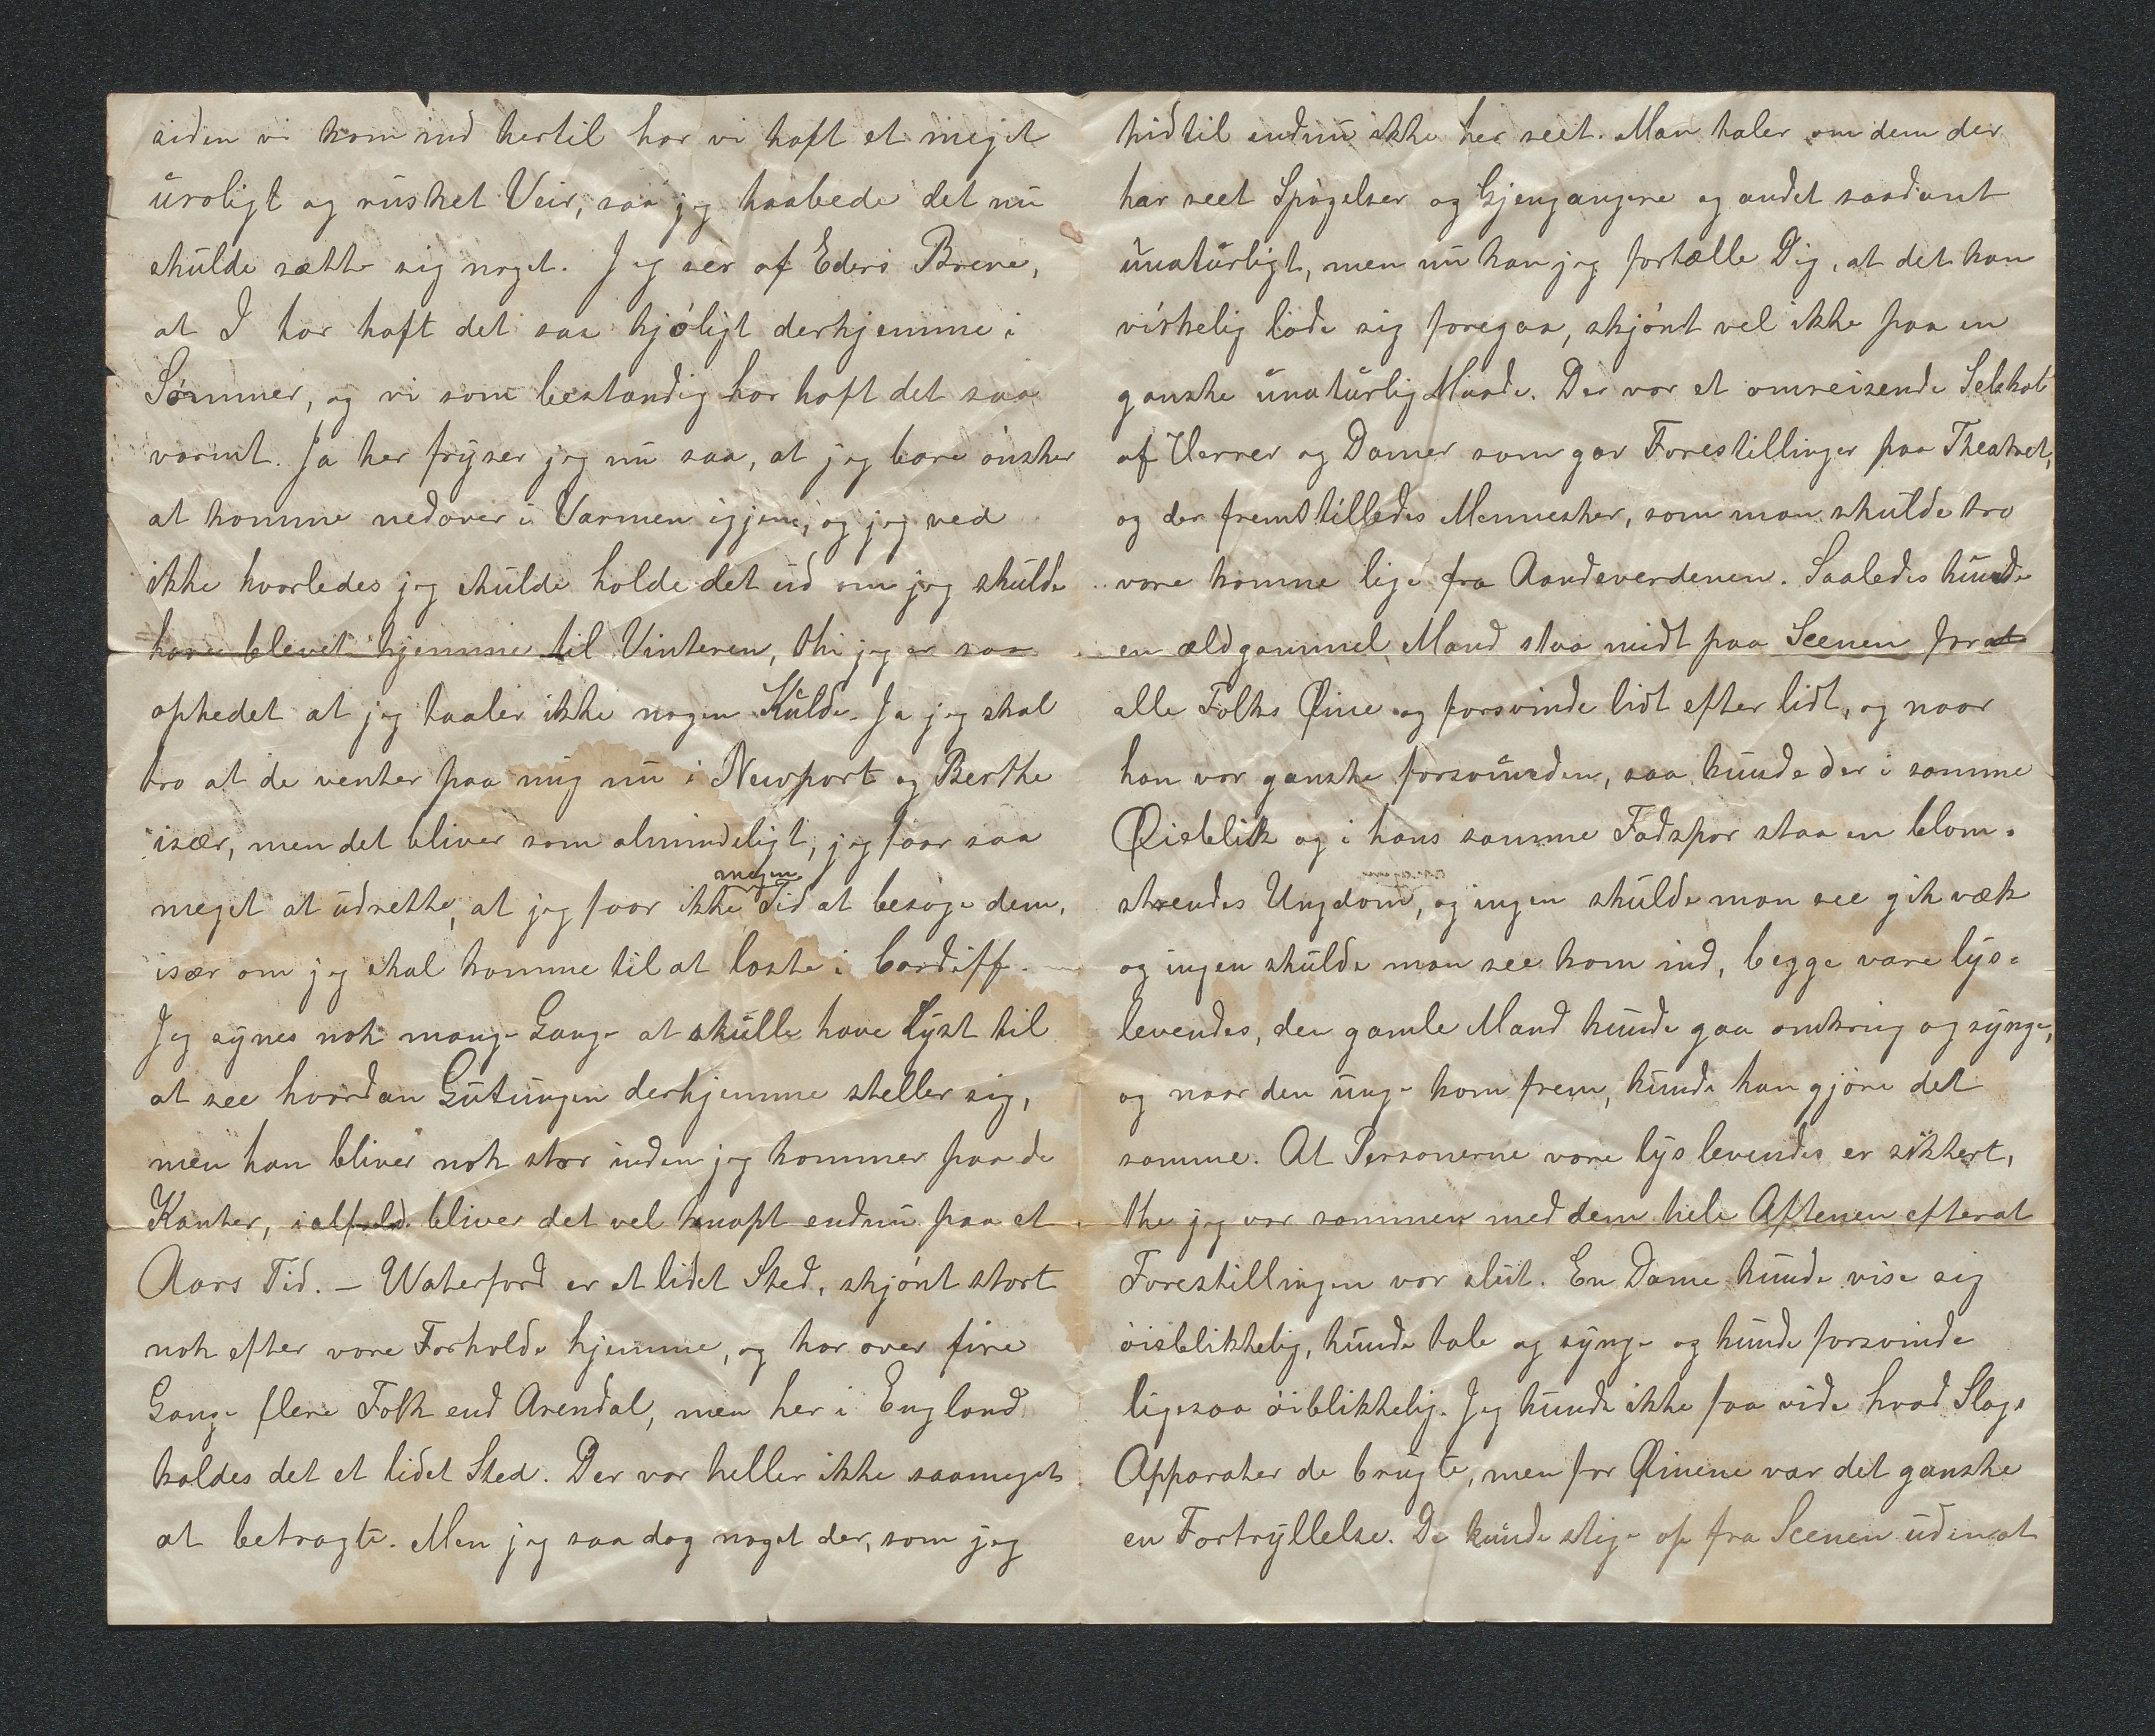 siden vi kom ind hertil har vi haft et meget
uroligt og rusket Veir, saa jeg haabede det nu
skulde sætte sig noget. Jeg ser af Eders Breve,
at I har haft det saa kjøligt derhjemme i
Sommer, og vi som bestandig har haft det saa
varmt. Ja her fryser jeg nu saa, at jeg bare ønsker
at komme nedover i Varmen igjen, og jeg ved
ikke hvorledes jeg skulde holde det ud om jeg skulde
have blevet hjemme til Vinteren, thi jeg er saa
ophedet at jeg taaler ikke nogen Kulde. Ja jeg skal
tro at de venter paa mig nu i Newport og Berthe
især, men det bliver som almindeligt, jeg faar saa
meget at udrette, at jeg faar ikke megen Tid at besøge dem,
især om jeg skal komme til at laste i Cardiff.
Jeg synes nok mange Gange at skulle have Lyst til
at see hvordan Gutungen derhjemme steller sig,
men han bliver nok stor inden jeg kommer paa de
Kanter, ialfald bliver det vel knapt endnu paa et
Aars Tid. – Waterford er et lidet Sted, skjønt stort
nok efter vore Forholde hjemme, og har over fire
Gange flere Folk end Arendal, men her i England
kaldes det et lidet Sted. Der var heller ikke saameget
at betragte. Men jeg saa dog noget der, som jeg
hidtil endnu ikke har seet. Man taler om dem der
har seet Spøgelser og Gjengangere og andet saadant
unaturligt, men nu kan jeg fortælle Dig, at det kan
virkelig lade sig foregaa, skjønt vel ikke paa en
ganske unaturlig Maade. Der var et omreisende Selskab
af Herrer og Damer som gav Forestillinger paa Theatret,
og der fremstilledes Mennesker, som man skulde tro
vare komne lige fra Aandsverdenen. Saaledes kunde
en ældgammel Mand staa midt paa Scenen for
alle Folks Øine og forsvinde lidt efter lidt, og naar
han var ganske forsvunden, saa kunde der i samme
Øieblik og i hans samme Fodspor staa en blom-
strendes Ungdom, og ingen skulde man see gik væk
og ingen skulde man see kom ind, begge vare lys-
levendes, den gamle Mand kunde gaa omkring og synge,
og naar den unge kom frem, kunde han gjøre det
samme. At Personerne vare lys levendes er sikkert,
thi jeg var sammen med dem hele Aftenen efterat
Forestillingen var slut. En Dame kunde vise sig
øieblikkelig, kunde tale og synge og kunde forsvinde
ligesaa øieblikkelig. Jeg kunde ikke faa vide hvad Slags
Apparater de brugte, men for Øinene var det ganske
en Fortryllelse. De kunde stige op fra Scenen udenat